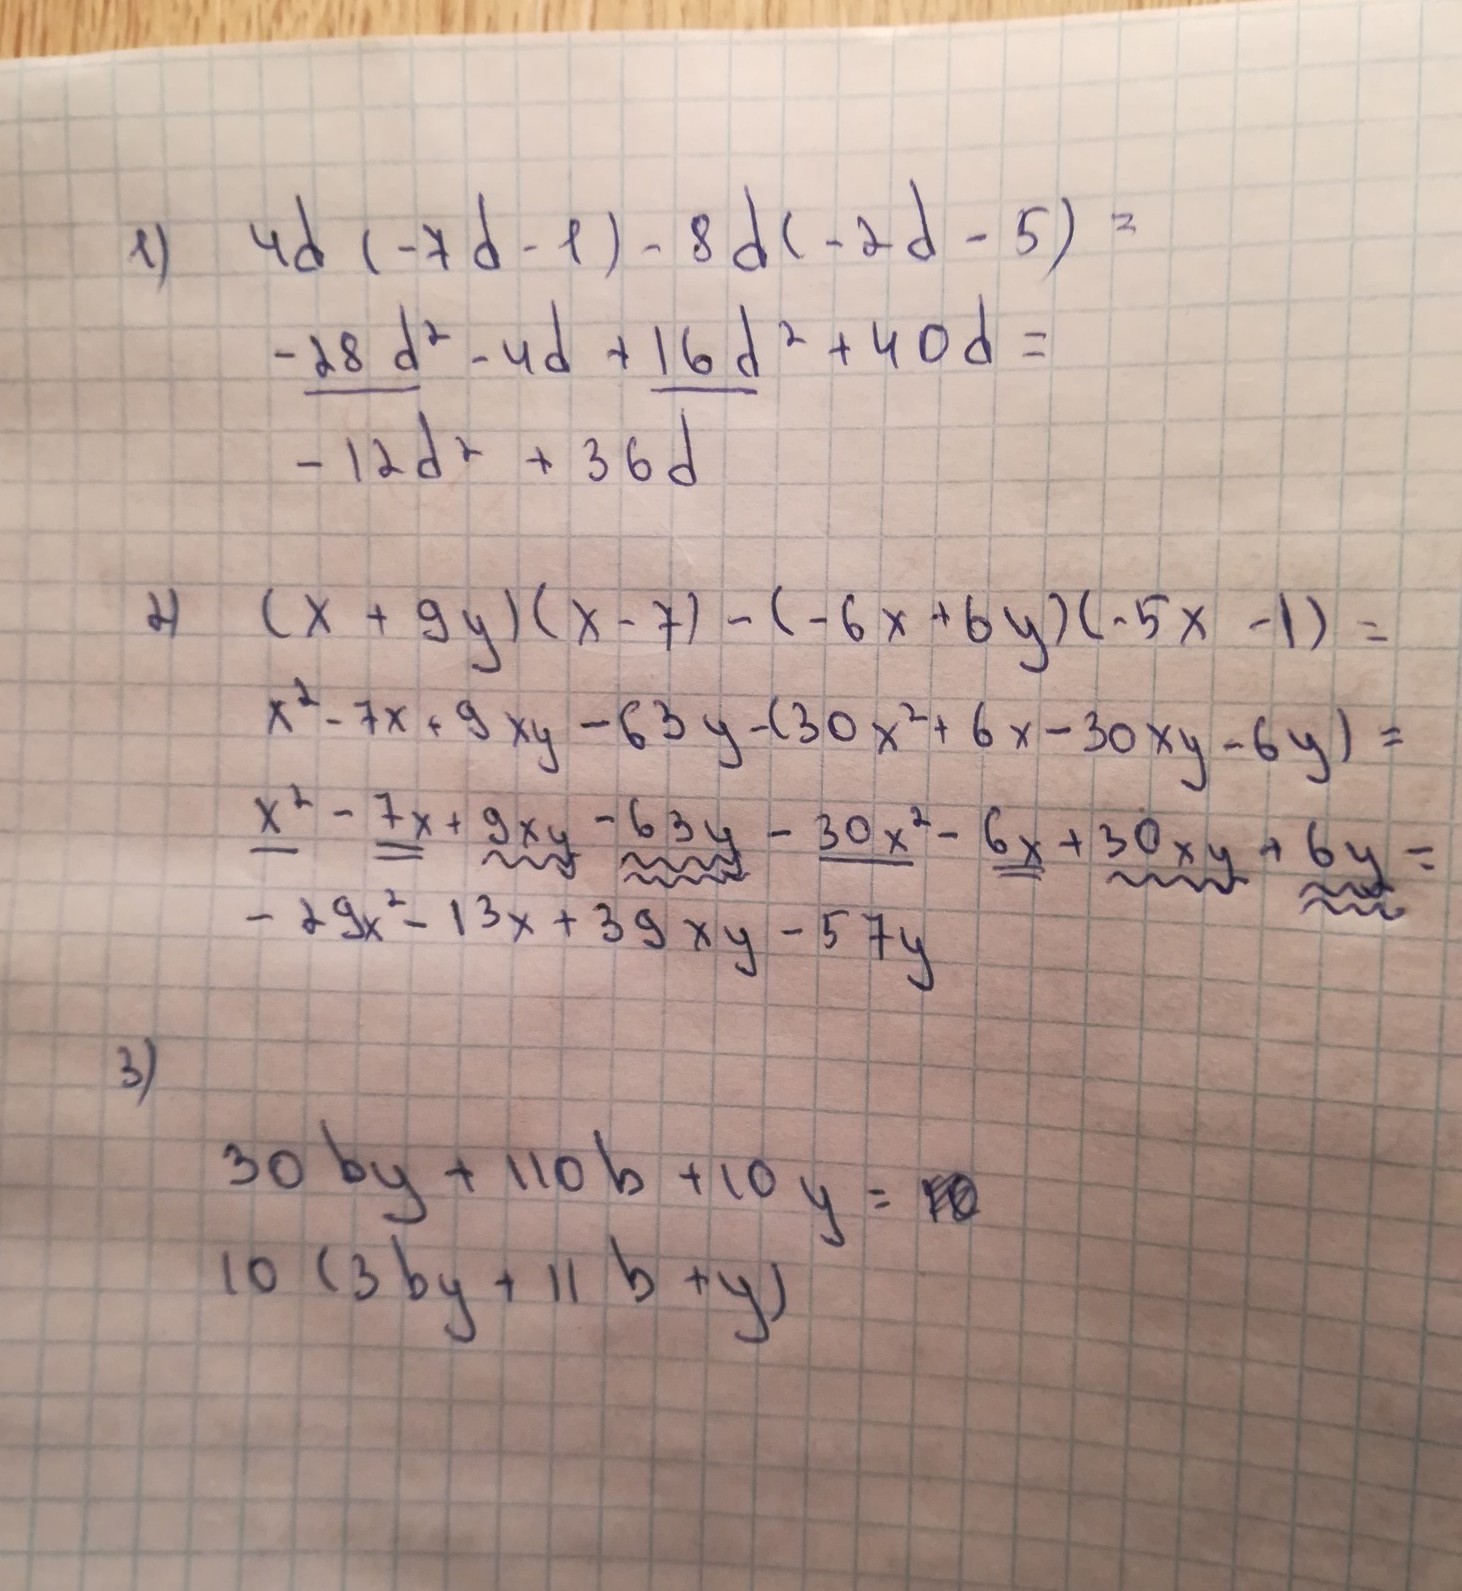 1) 4d (-7d-1)-8d(-2d-5)=
-28d²-4d+16d²+40d=
-12d²+36d
2) (x+9y)(x-7)-(-6x+6y)(-5x-1)=
x²-7x+9xy-63y-(30x²+6x-30xy-6y)=
x²-7x+9xy-63y-30x²-6x+30xy+6y=
-29x²-13x+39xy-57y
3)
30by+110b+10y=
10(3by+11b+y)